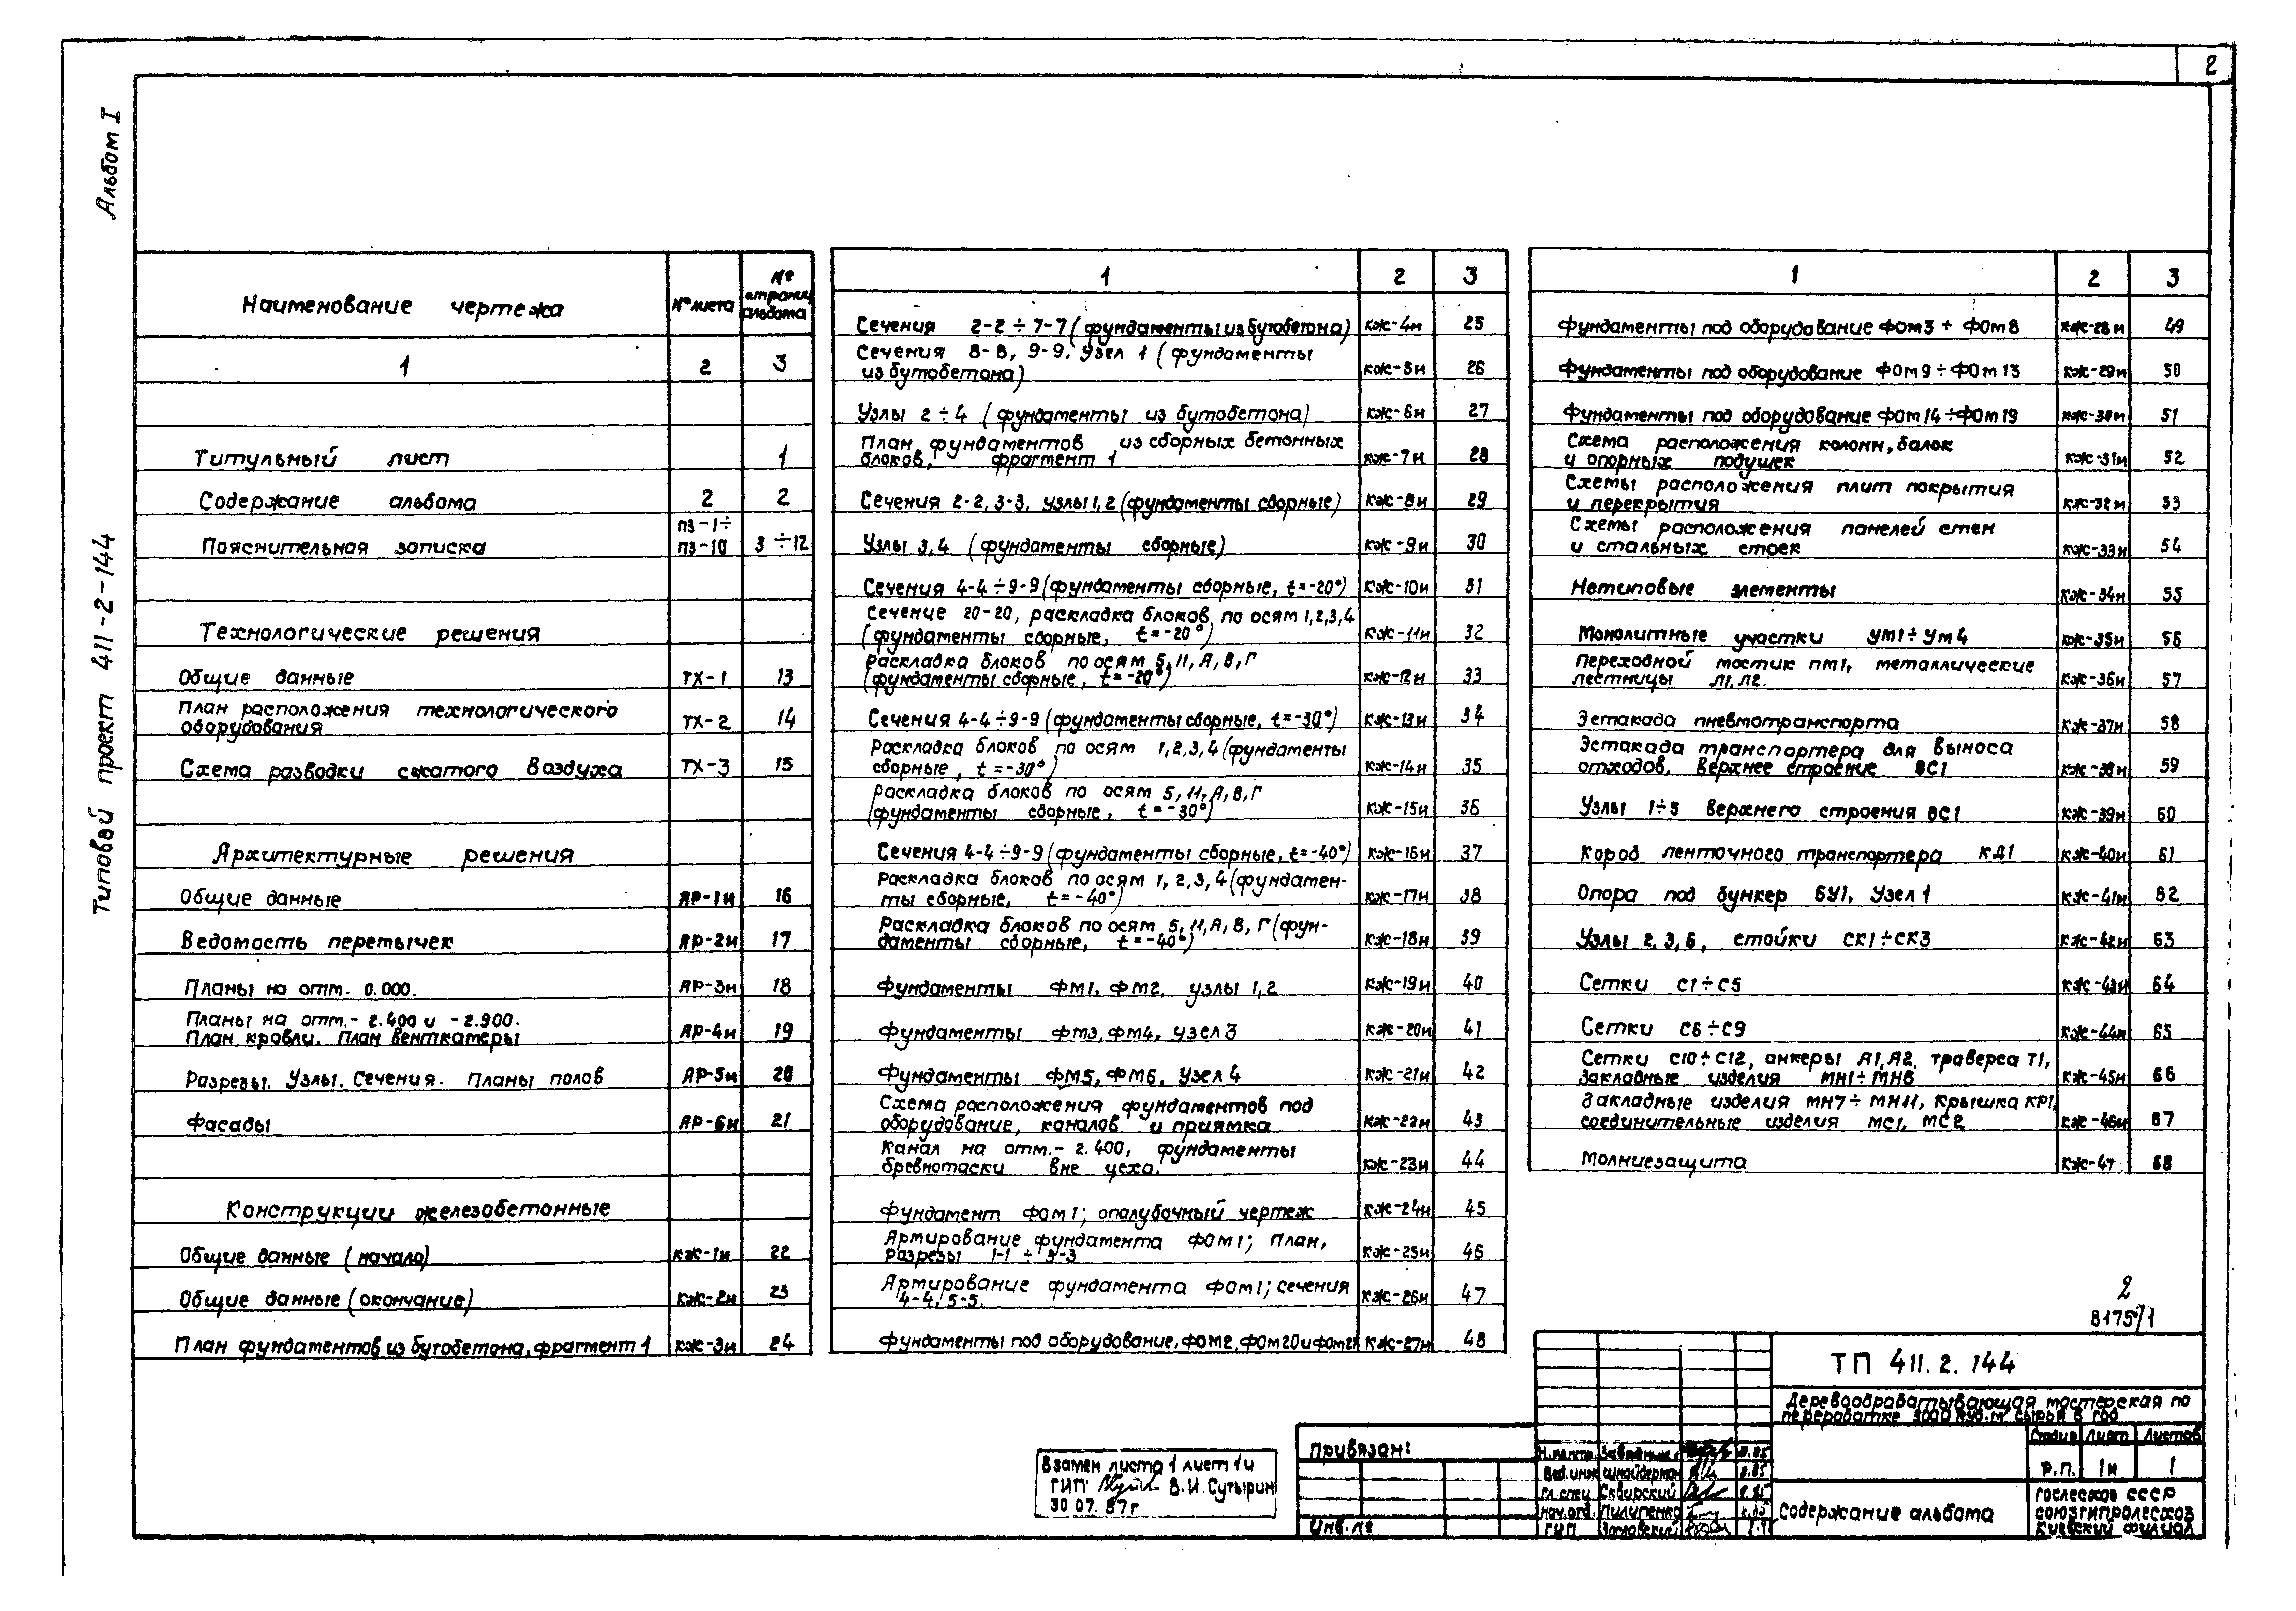 2
Альбом I
Типовой проект 411-2-144
Наименование чертежа № листа № страниц альбома
1 2 3
Титульный лист 1
Содержание альбома 2 2
Пояснительная записка ПЗ-1÷ ПЗ-10 3÷12
Технологические решения
Общие данные ТХ-1 13
План расположения технологического
оборудования ТХ-2 14
Схема разводки сжатого воздуха ТХ-3 15
Архитектурные решения
Общие данные АР-1и 16
Ведомость перемычек АР-2и 17
Планы на отм. 0.000. АР-3и 18
Планы на отм.- 2.400 и -2.900.
План кровли. План венткамеры АР-4и 19
Разрезы. Узлы. Сечения. Планы полов АР-5и 20
Фасады АР-6и 21
Конструкции железобетонные
Общие данные (начало) КЖ-1и 22
Общие данные (окончание) КЖ-2и 23
План фундаментов из бутобетона, фрагмент 1 КЖ-3и 24
1 2 3
Сечения 2-2÷7-7 (фундаменты из бутобетона) КЖ-4и 25
Сечения 8-8, 9-9. Узел 1 (фундаменты
из бутобетона) КЖ-5и 26
Узлы 2÷4 (фундаменты из бутобетона) КЖ-6и 27
План фундаментов из сборных бетонных
блоков, фрагмент 1 КЖ-7и 28
Сечения 2-2, 3-3, узлы 1,2 (фундаменты сборные) КЖ-8и 29
Узлы 3,4 (фундаменты сборные) КЖ-9и 30
Сечения 4-4÷9-9 (фундаменты сборные, t=-20°) КЖ-10и 31
Сечение 20-20, раскладка блоков по осям 1,2,3,4
(фундаменты сборные, t=-20°) КЖ-11и 32
Раскладка блоков по осям 5,11,А,В,Г
(фундаменты сборные, t=-20°) КЖ-12и 33
Сечения 4-4÷9-9 (фундаменты сборные, t=-30°) КЖ-13и 34
Раскладка блоков по осям 1,2,3,4 (фундаменты
сборные, t=-30°) КЖ-14и 35
Раскладка блоков по осям 5,11,А,В,Г
(фундаменты сборные, t=-30°) КЖ-15и 36
Сечения 4-4÷9-9 (фундаменты сборные, t=-40°) КЖ-16и 37
Раскладка блоков по осям 1,2,3,4 (фундамен-
ты сборные, t=-40°) КЖ-17и 38
Раскладка блоков по осям 5,11,А,В,Г (фун-
даменты сборные, t=-40°) КЖ-18и 39
Фундаменты ФМ1, ФМ2, узлы 1,2 КЖ-19и 40
Фундаменты ФМ3, ФМ4, узел 3 КЖ-20и 41
Фундаменты ФМ5, ФМ6, узел 4 КЖ-21и 42
Схема расположения фундаментов под
оборудование, каналов и приямка КЖ-22и 43
Канал на отм.- 2.400, фундаменты
бревнотаски вне цеха. КЖ-23и 44
Фундамент ФОМ1; опалубочный чертеж КЖ-24и 45
Армирование фундамента ФОМ1; план,
разрезы 1-1÷3-3 КЖ-25и 46
Армирование фундамента ФОМ1; сечения
4-4, 5-5. КЖ-26и 47
Фундаменты под оборудование, ФОМ2, ФОМ20 и ФОМ21 КЖ-27и 48
1 2 3
Фундаменты под оборудование ФОМ3÷ФОМ8 КЖ-28и 49
Фундаменты под оборудование ФОМ9÷ФОМ13 КЖ-29и 50
Фундаменты под оборудование ФОМ14÷ФОМ19 КЖ-30и 51
Схема расположения колонн, балок
и опорных подушек КЖ-31и 52
Схемы расположения плит покрытия
и перекрытия КЖ-32и 53
Схемы расположения панелей стен
и стальных стоек КЖ-33и 54
Нетиповые элементы КЖ-34и 55
Монолитные участки УМ1÷УМ4 КЖ-35и 56
Переходной мостик ПМ1, металлические
лестницы Л1, Л2. КЖ-36и 57
Эстакада пневмотранспорта КЖ-37и 58
Эстакада транспортера для выноса
отходов, верхнее строение ВС1 КЖ-38и 59
Узлы 1÷5 верхнего строения ВС1 КЖ-39и 60
Короб ленточного транспортера КД1 КЖ-40и 61
Опора под бункер БУ1, Узел 1 КЖ-41и 62
Узлы 2,3,6, стойки СК1÷СК3 КЖ-42и 63
Сетки С1÷С5 КЖ-43и 64
Сетки С6÷С9 КЖ-44и 65
Сетки С10÷С12, анкеры А1,А2, траверса Т1,
закладные изделия МН1÷МН6 КЖ-45и 66
Закладные изделия МН7÷МН11, крышка КР1,
соединительные изделия МС1, МС2 КЖ-46и 67
Молниезащита КЖ-47 68
2
8175/1
ТП 411.2.144
Деревообрабатывающая мастерская по
переработке куб.м сырья в год
Стадия Лист Листов
Р.П. 1и 1
Содержание альбома
Гослесхоз СССР
Союзгипролесхоз
Киевский филиал
Привязан:
Инв.№
Н.контр.
Вед.инж Шнайдерман
Гл.спец. Сквирский
Нач.отд. Пилипенко
ГИП Заславский
Взамен листа 1 лист 1и
ГИП В.И.Сутырин
30 07. 87г